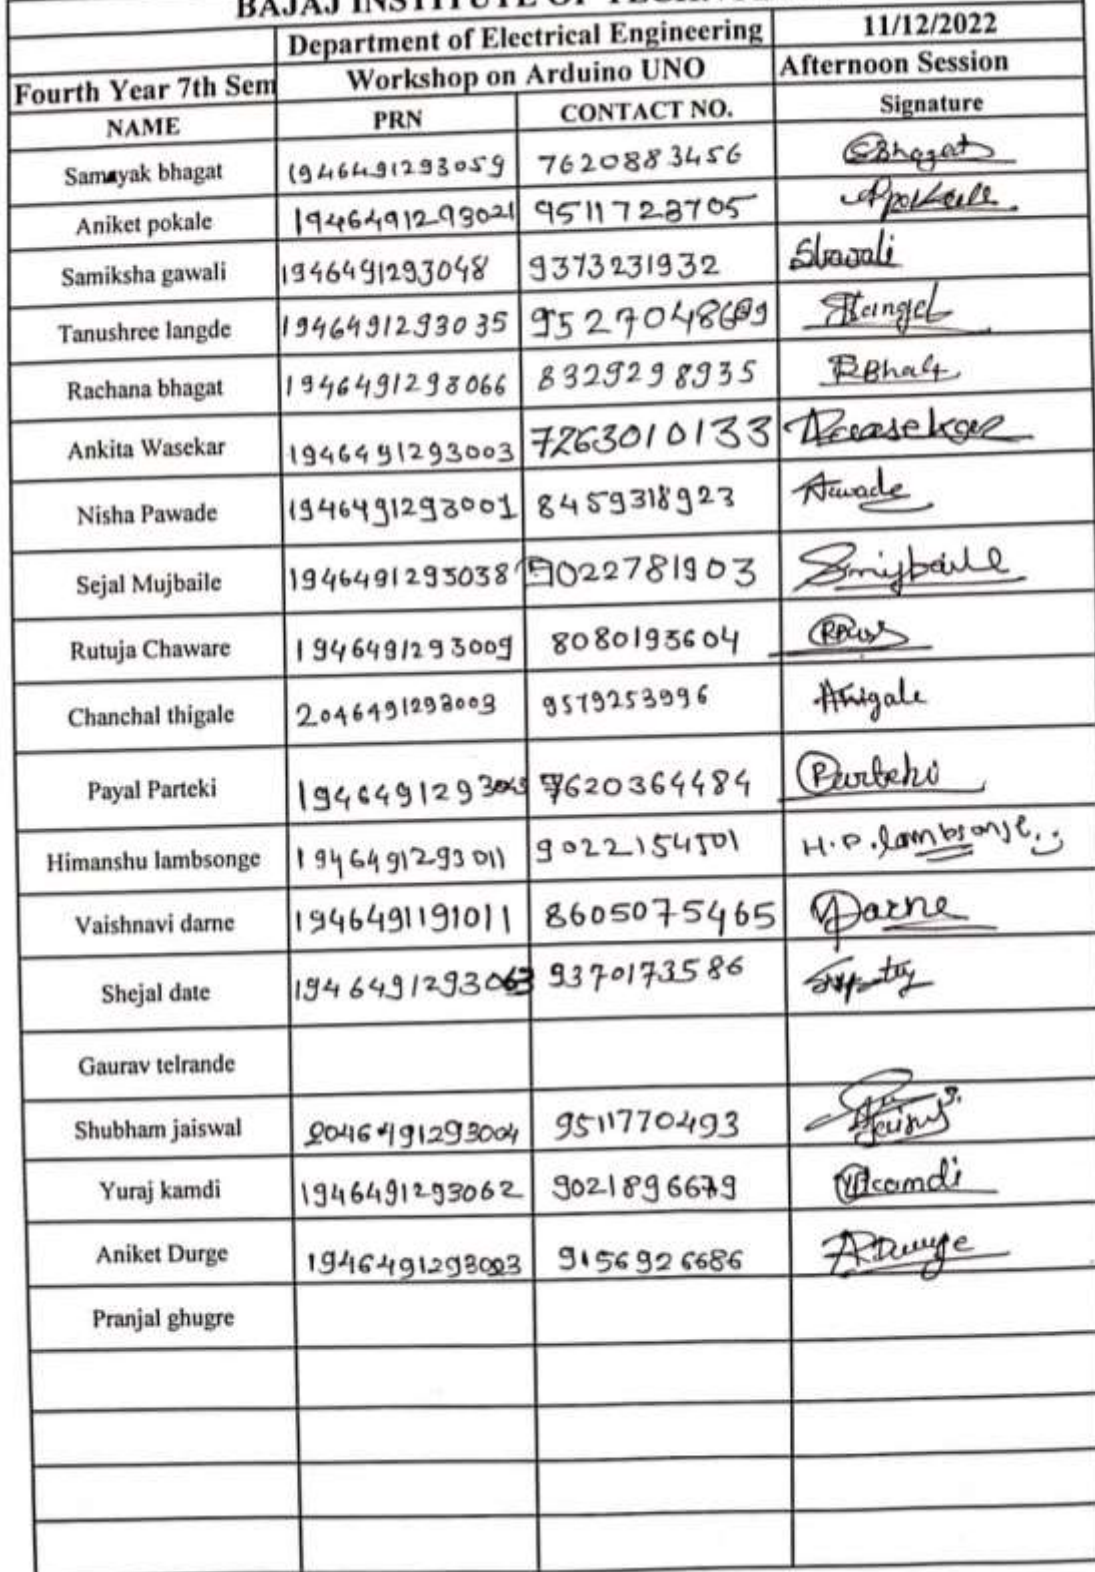 BAJAJ INSTITUTE OF
Department of Electrical Engineering 11/12/2022
Fourth Year 7th Sem Workshop on Arduino UNO Afternoon Session
NAME PRN CONTACT NO. Signature
Samayak bhagat 1946491293059 7620883456 SBhagat
Aniket pokale 1946491293021 9511723705 Apokale
Samiksha gawali 1946491293048 9373231932
Tanushree langde 1946491293035
Rachana bhagat 1946491293066 8329298935
Ankita Wasekar 1946491293003 7263010133
Nisha Pawade 1946491293001 8459318923
Sejal Mujbaile 1946491293038 9022781903 Smujbaile
Rutuja Chaware 1946491293009 8080193604
Chanchal thigale 2046491293003 9579253996 thigale
Payal Parteki 7620364484 Parteki
Himanshu lambsonge 1946491293011 9022154501 H.P.lambsonge
Vaishnavi darne 1946491191011 8605075465 VDarne
Shejal date 1946491293063 9370173586
Gaurav telrande
Shubham jaiswal 2046491293004 9511770493
Yuraj kamdi 1946491293062 Ykamdi
Aniket Durge 9156926686 ADurge
Pranjal ghugre